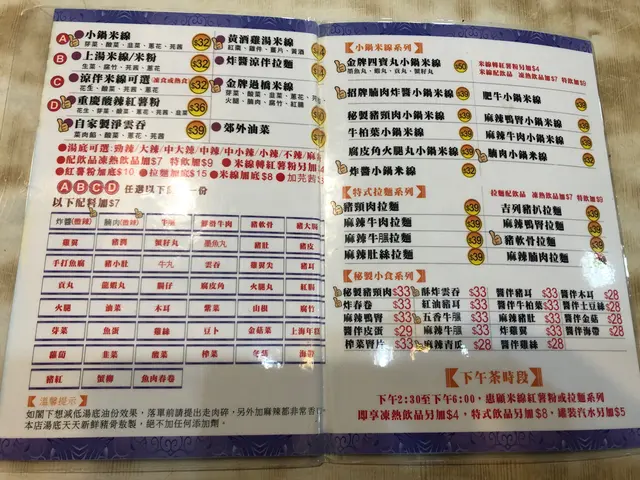 A 小鍋米線 $32
芽菜、酸菜、韭菜、蔥花、芫茜
B 上湯米線/米粉 $32
生菜、腐竹、芫茜、蔥花
C 涼伴米線可選 凍食或熱食 $32
花生、酸菜、芫茜、蔥花
D 重慶酸辣紅薯粉 $36
自家製淨雲吞 $39
菜肉餡、酸菜、蔥花、芫茜
黃酒雞湯米線
炸醬涼伴拉麵
金牌過橋米線
火腿、腩肉、腐竹、紅腸
郊外油菜
湯底可選:勁辣/大辣/中大辣/中辣/中小辣/小辣/不辣/麻
配飲品凍熱飲品加$7 特飲加$9 米線轉紅薯粉另加$4
紅薯粉加底$10 拉麵加底$15 米線加底$8 加芫茜
A B C D 任選以下 一份
以下配料加$7
炸醬(微辣) 腩肉(微辣) 牛 豬軟骨 豬大腸
雞翼 豬潤 蟹籽丸 墨魚丸 豬肚 豬皮
手打魚腐 豬小肚 牛丸 雲吞 雞翼尖 豬耳
貢丸 龍蝦丸 腸仔 腐皮角 火腿丸 紅腸
火腿 油菜 木耳 紫菜 山根 腐竹
芽菜 魚蛋 雞絲 豆卜 金菇菜 上海年糕
蘿蔔 韭菜 酸菜 榨菜 冬菇 海帶
豬紅 蟹柳 魚肉春卷
溫馨提示
如閣下想減低湯底油份效果,落單前請提出走肉碎,另外加麻辣都非常香
本店湯底天天新鮮豬骨熬製,絕不加任何添加劑。
小鍋米線系列
金牌四寶丸小鍋米線
墨魚丸、蝦丸、貢丸、蟹籽丸
米線轉紅薯粉另加$4
米線配飲品 凍熱飲品加$7 特飲加$9
招牌腩肉炸醬小鍋米線
肥牛小鍋米線
秘製豬頸肉小鍋米線
麻辣鴨腎小鍋米線
牛柏葉小鍋米線
麻辣牛肉小鍋米線
腐皮角火腿丸小鍋米線
腩肉小鍋米線 $32
炸醬小鍋米線 $32
特式拉麵系列
拉麵配飲品 凍熱飲品加$7 特飲加$9
豬頸肉拉麵 $39
吉列豬扒拉麵 $39
麻辣牛肉拉麵 $39
麻辣鴨腎拉麵 $39
麻辣牛𦟌拉麵 $39
豬軟骨拉麵 $39
麻辣肚絲拉麵 $39
麻辣腩肉拉麵 $39
秘製小食系列
秘製豬頸肉 $33 酥炸雲吞 $33 醬伴豬耳 $33 醬伴木耳 $28
炸春卷 $33 紅油豬耳 $33 醬伴牛柏葉 $33 醬伴土豆絲 $28
麻辣鴨腎 $33 五香牛𦟌 $33 麻辣豬肚 $33 醬伴金菇 $28
醬伴皮蛋 $29 麻辣牛𦟌 $33 炸雞翼 $33 醬伴海帶 $28
榨菜腎片 $33 麻辣青瓜 $28 醬伴雞絲 $28
下午茶時段
下午2:30至下午6:00,惠顧米線紅薯粉或拉麵系列
即享凍熱飲品另加$4,特式飲品另加$8,罐裝汽水另加$5